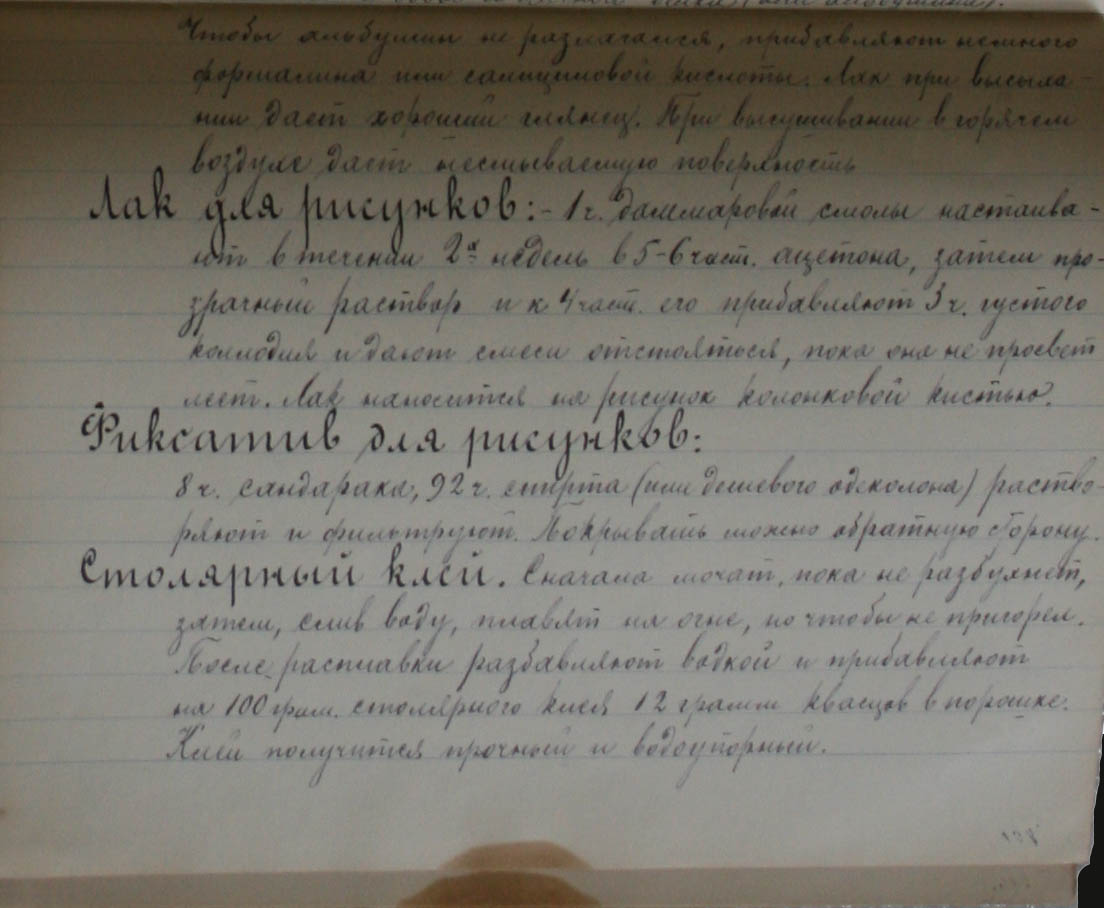 Чтобы альбумин не разлагался, прибавляют немного
формалина или салициловой кислоты. Лак при высыха-
нии дает хороший глянец. При высушивании в горячем
воздухе дает несмываемую поверхность
Лак для рисунков: - 1 ч. даммаровой смолы настаива-
ют в течении 2х недель в 5-6 част. ацетона, затем про-
зрачный раствор и к 4 част. его прибавляют 3 ч. густого
коллодия и дают смеси отстояться, пока она не просвет
леет. Лак наносится на рисунок колонковой кистью.
Фиксатив для рисунков:
8 ч. сандарака, 92 ч. спирта (или дешевого одеколона) раство-
ряют и фильтруют. Покрывать можно обратную сторону.
Столярный клей. Сначала мочат, пока не разбухнет,
затем, слив воду, плавят на огне, но чтобы не пригорел.
После расплавки разбавляют водкой и прибавляют
на 100 грам. столярного клея 12 грамм квасцов в порошке.
Клей получится прочный и водоупорный.